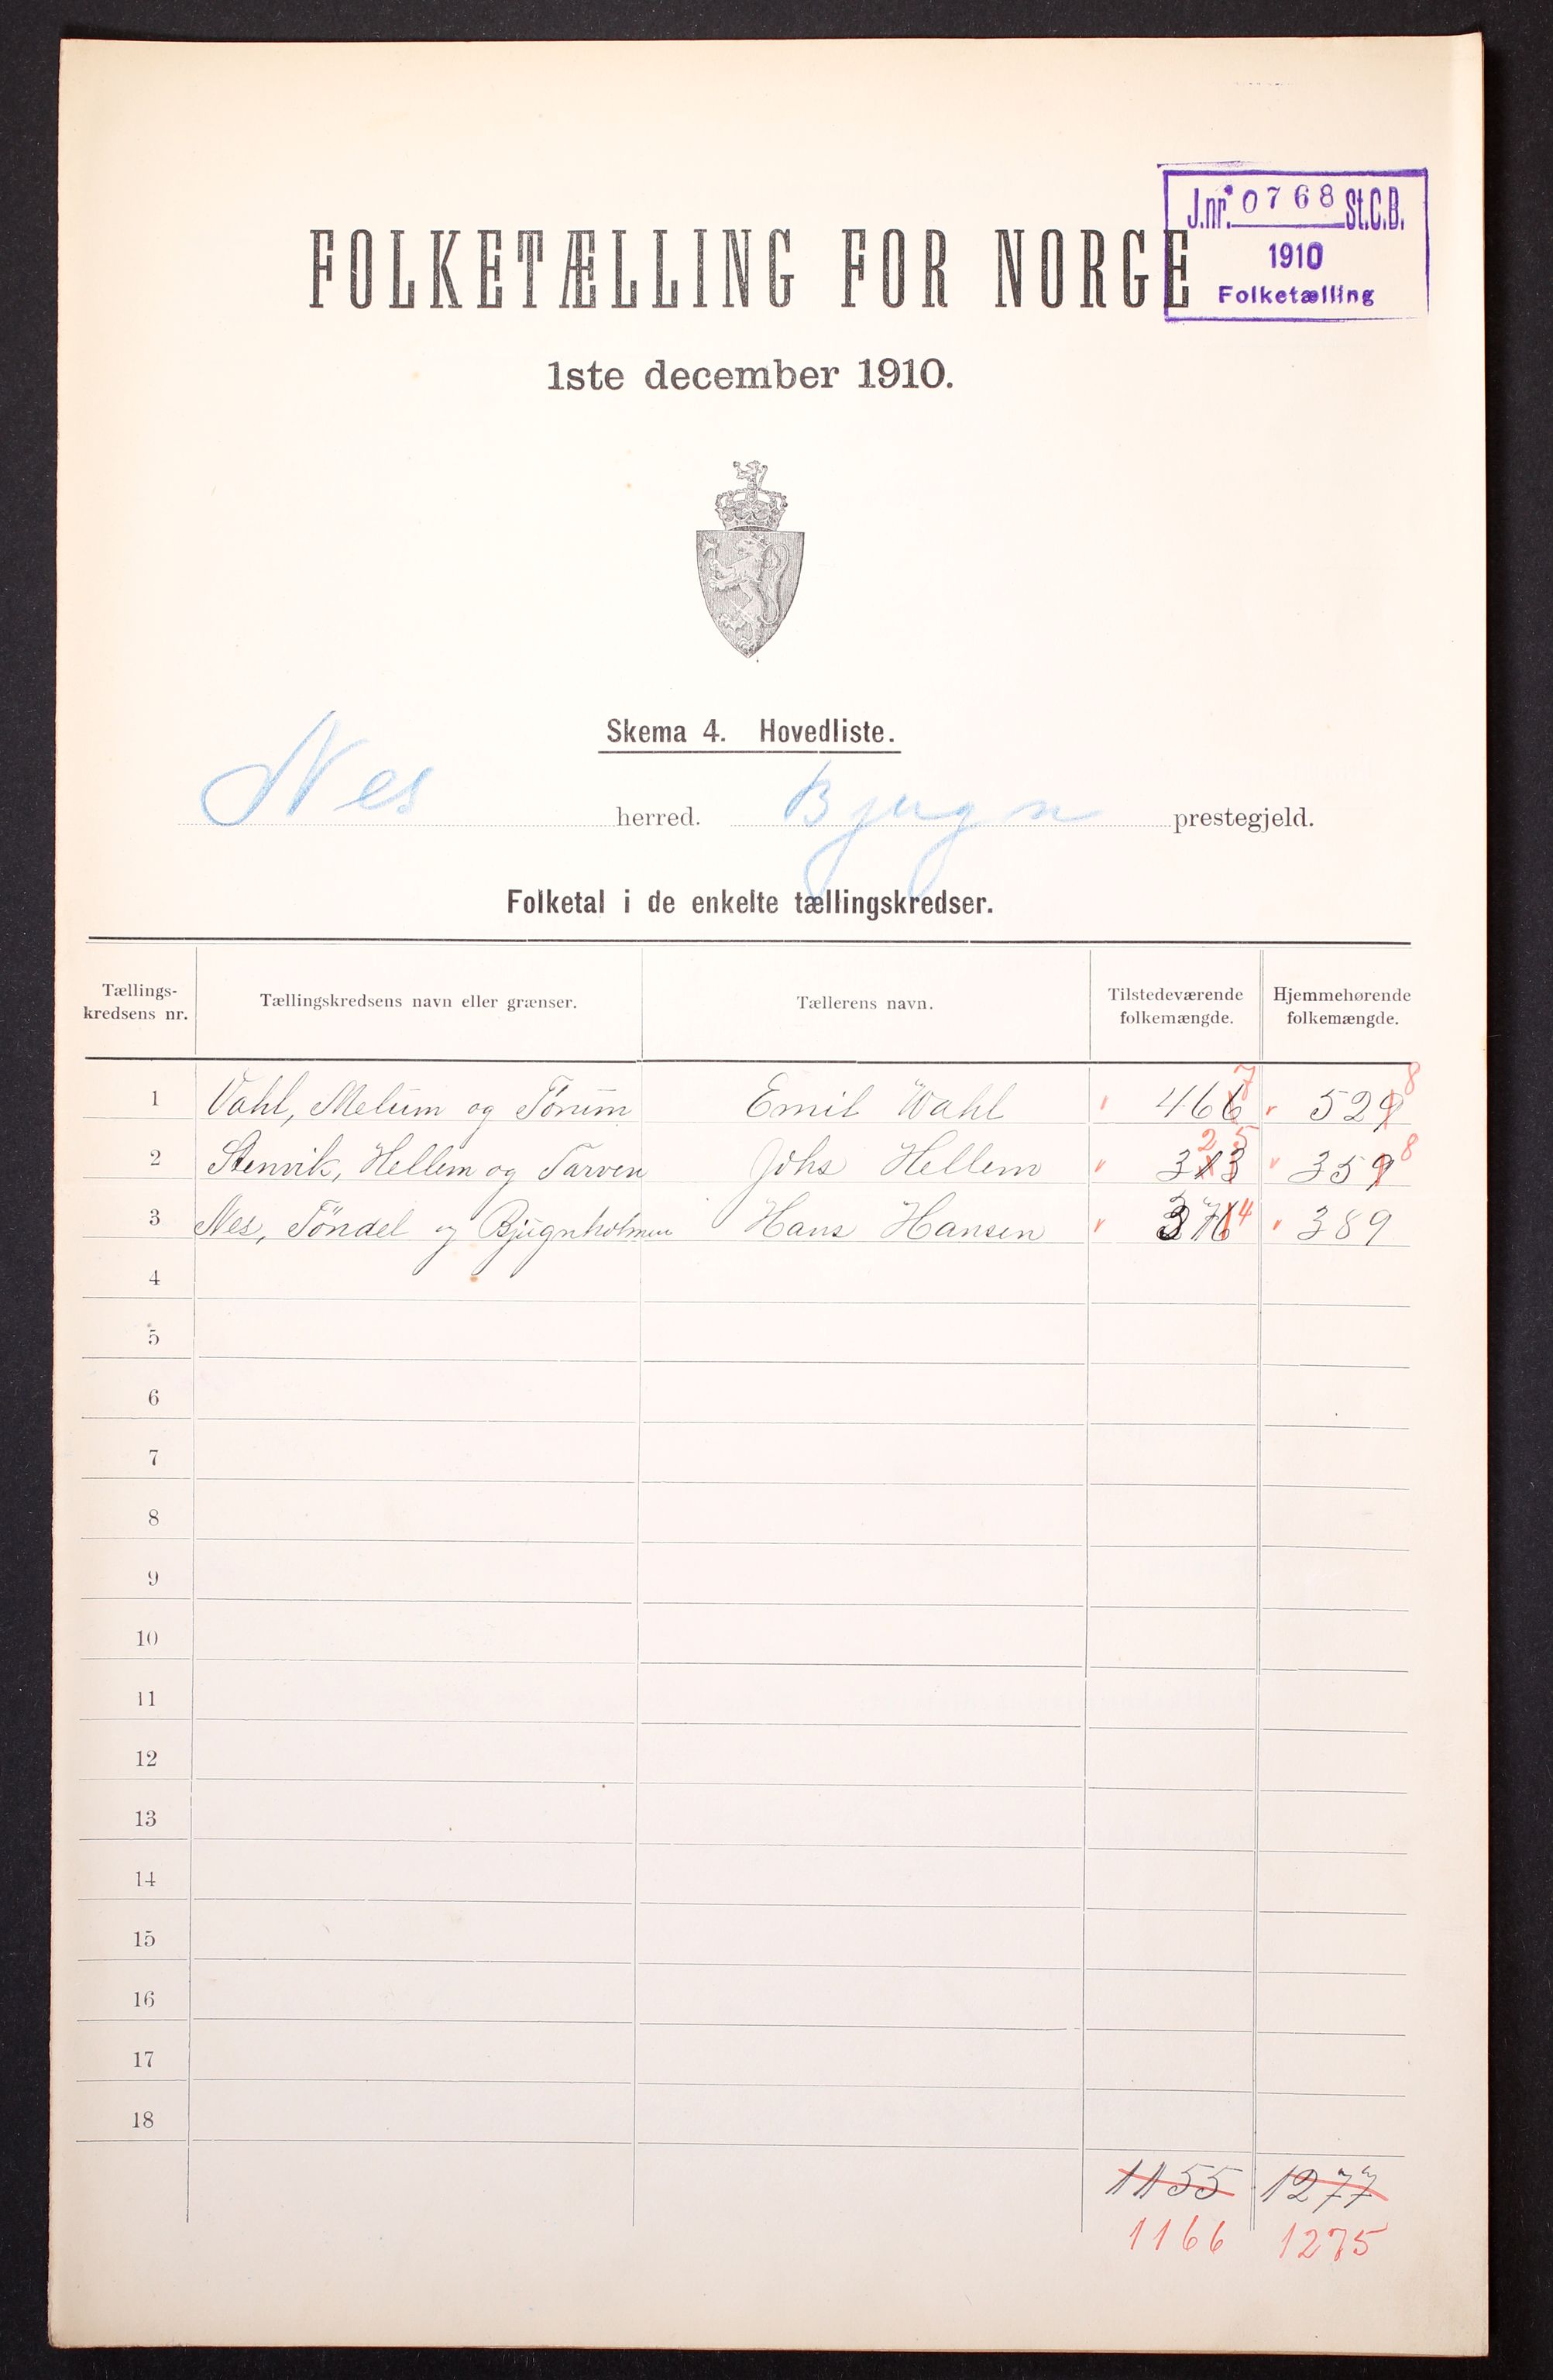 J.nr. 0768 St.C.B.
1910
Folketælling
FOLKETÆLLING FOR NORGE
1ste december 1910.
Skema 4. Hovedliste.
Nes herred. Bjugn prestegjeld.
Folketal i de enkelte tællingskredser.
Tællings-kredsens nr. Tællingskredsens navn eller grænser. Tællerens navn. Tilstedeværende folkemængde. Hjemmehørende folkemængde.
1 Vahl, Melum og Tørum Emil Wahl 466 7 529 8
2 Stenvik, Hellem og Tarven Johs Hellem 313 25 359 8
3 Nes, Töndel og Bjugnholmen Hans Hansen 376 4 389
4
5
6
7
8
9
10
11
12
13
14
15
16
17
18
1155 1277
1166 1275